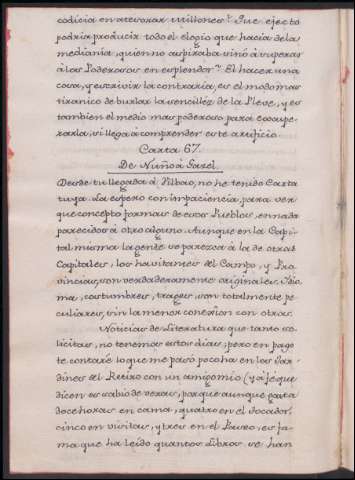 codicia en atesorar millones? Que efecto
podria producir todo el elogio que hacia de la
mediania, quien no aspiraba sinó á superar
á los Poderosos en esplendor? El hacer una
cosa, y escrivir la contraria, es el modo mas
tiranico de burlar la sencillez de la Pleve, y es
tambien el medio mas poderoso para exaspe-
rarla, si llega á comprender este artificio.
Carta 67.
De Nuño á Gazel.
Desde tu llegada á Bilbao, no he tenido Carta
tuya. La espero con impaciencia, para ver
que concepto formas de esos Pueblos, en nada
parecidos á otro alguno. Aunque en la Capi-
tal misma la gente se parezca á la de otras
Capitales, los havitantes del Campo, y Pro-
vincias, son verdaderamente originales. Idio
ma, costumbres, trages, son totalmente pe-
culiares, sin la menor conexîon con otros.
Noticias de Literatura que tanto so-
licitas, no tenemos estos dias; pero en pago
te contaré lo que me pasó poco ha en los Jar-
dines del Retiro con un amigo mio (y á fé que
dicen es sabio de veras, porque aunque gasta
doce horas en cama, quatro en el tocador,
cinco en visitas, y tres en el Paseo, es fa-
ma que ha leido quantos Libros se han